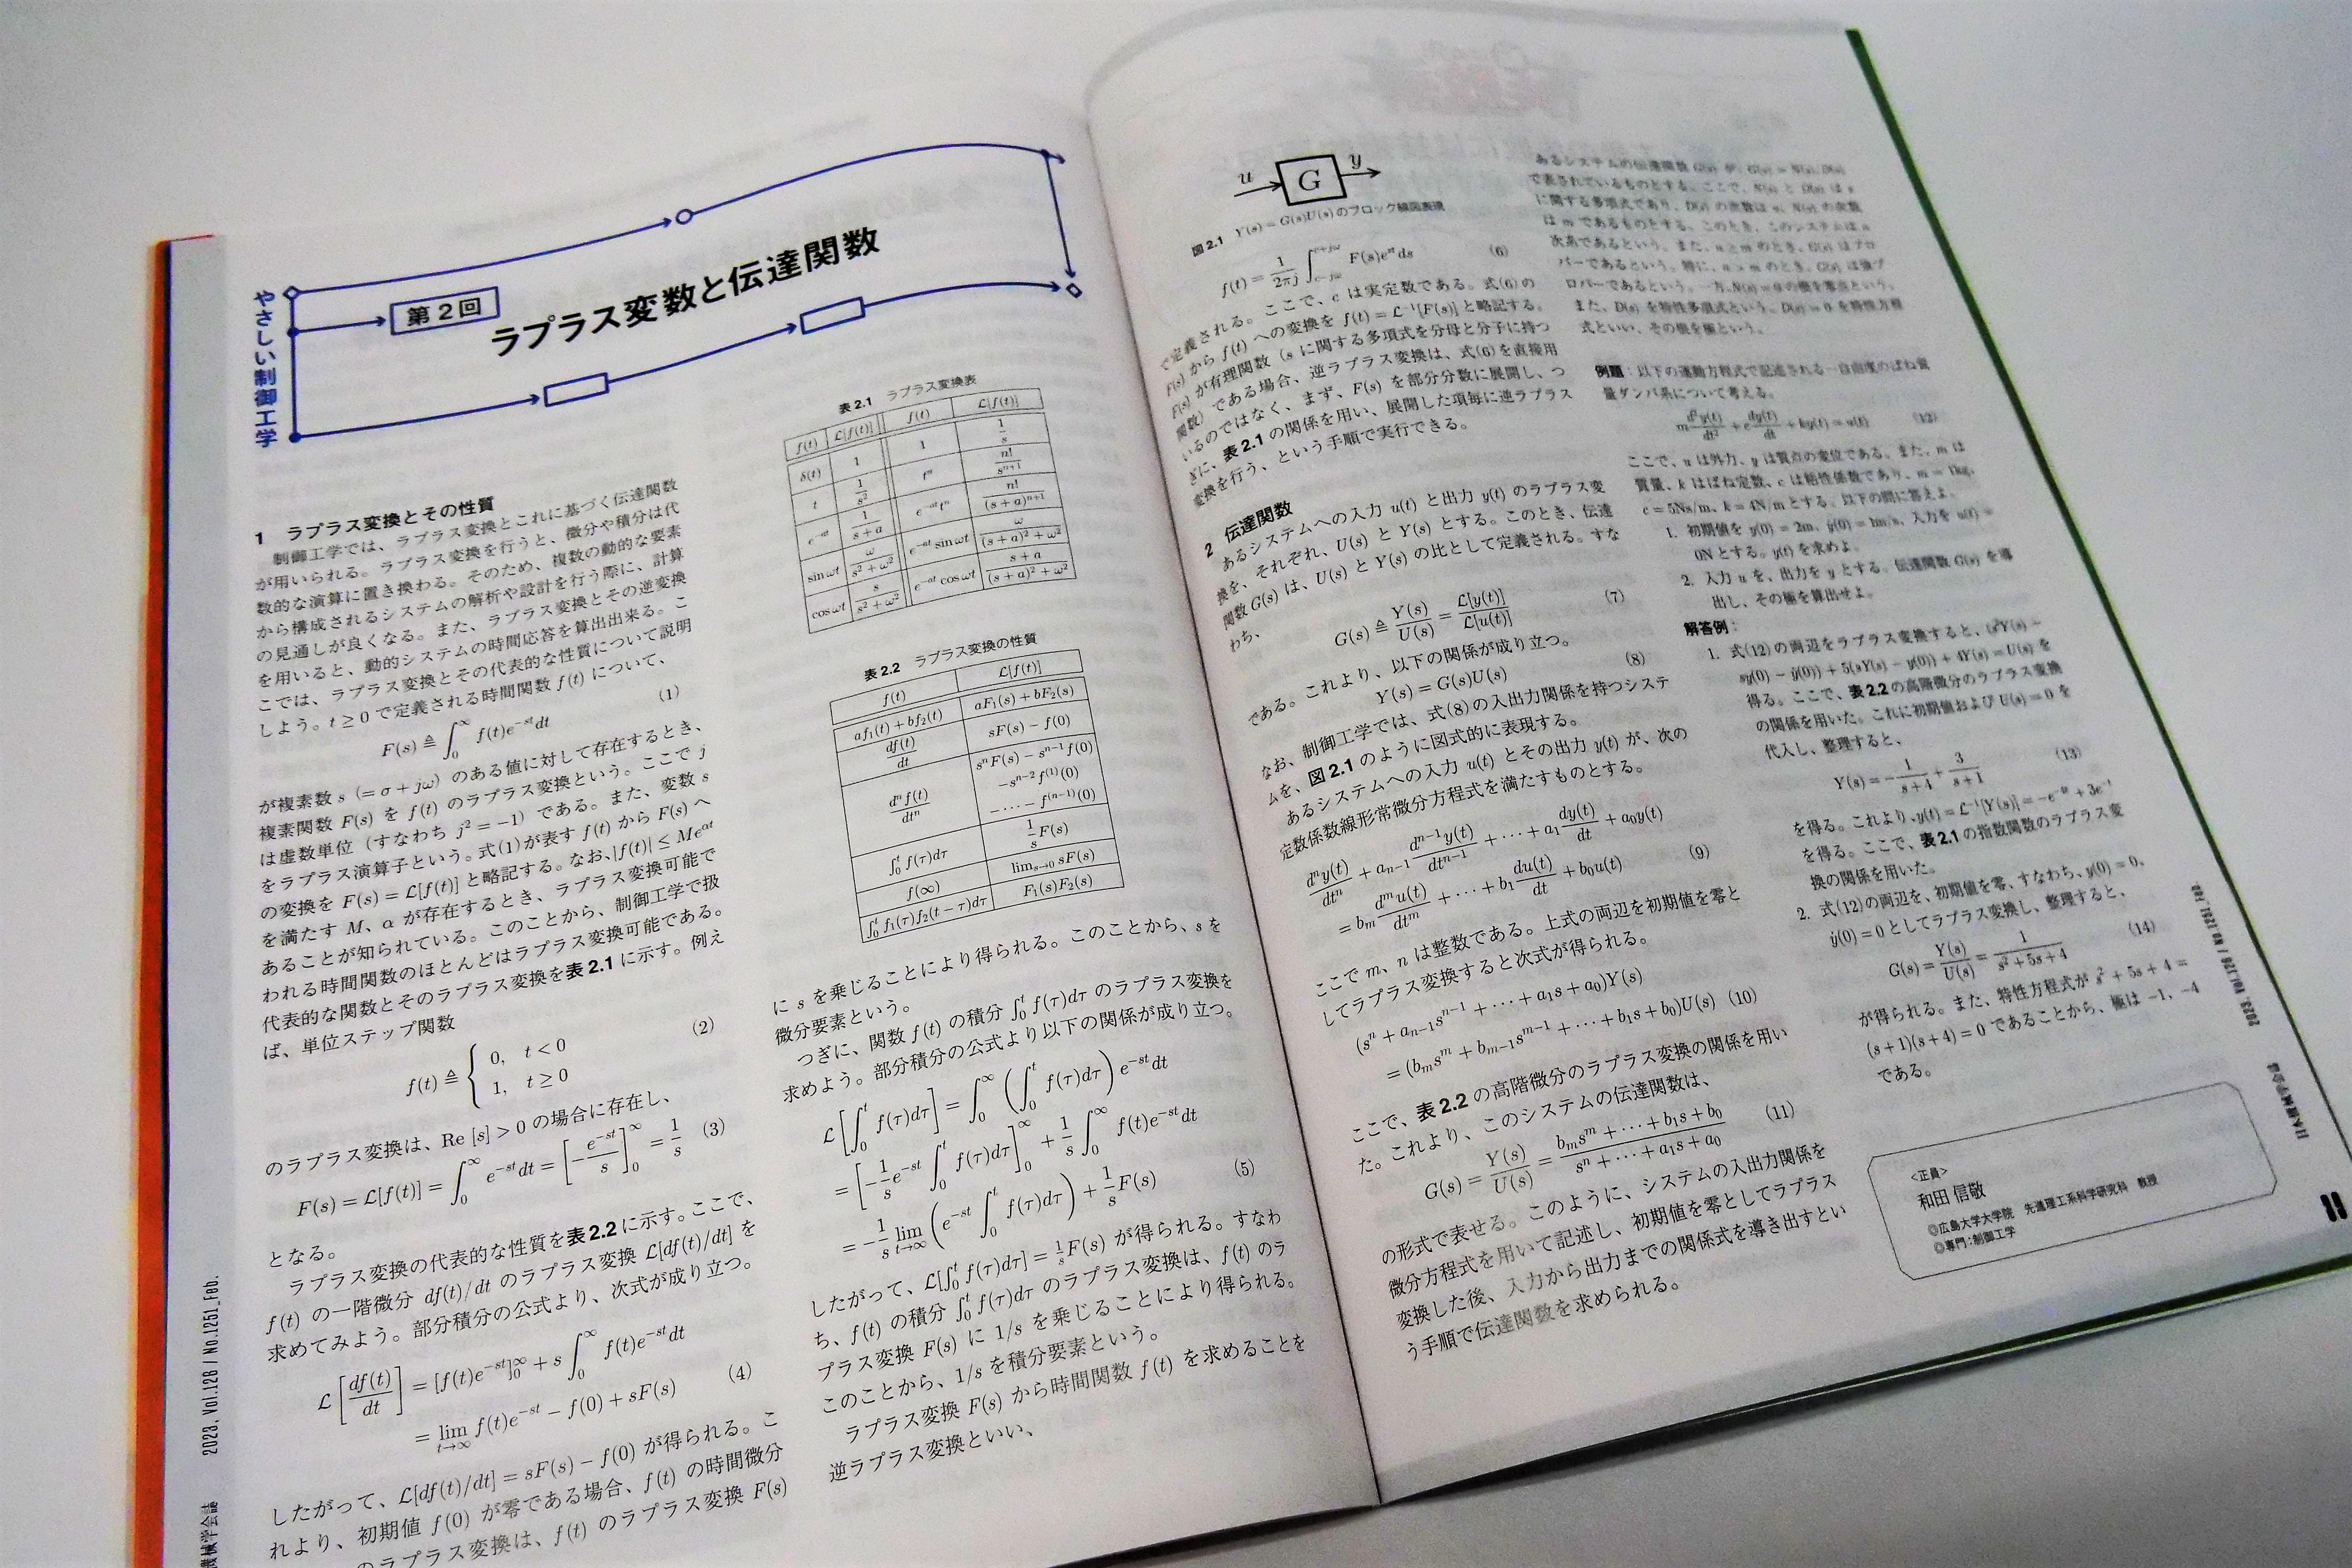 やさしい制御工学
第2回
ラプラス変数と伝達関数
1 ラプラス変換とその性質
制御工学では、ラプラス変換とこれに基づく伝達関数
が用いられる。ラプラス変換を行うと、微分や積分は代
数的な演算に置き換わる。そのため、複数の動的な要素
から構成されるシステムの解析や設計を行う際に、計算
の見通しが良くなる。また、ラプラス変換とその逆変換
を用いると、動的システムの時間応答を算出出来る。こ
こでは、ラプラス変換とその代表的な性質について説明
しよう。t ≥ 0 で定義される時間関数 f(t) について、
F(s) ≜ ∫_0^∞ f(t)e^{-st}dt (1)
が複素数 s (= σ + jω) のある値に対して存在するとき、
複素関数 F(s) を f(t) のラプラス変換という。ここで j
は虚数単位（すなわち j² = −1）である。また、変数 s
をラプラス演算子という。式(1)が表す f(t) から F(s) へ
の変換を F(s) = ℒ[f(t)] と略記する。なお、|f(t)| ≤ Me^{αt}
を満たす M、α が存在するとき、ラプラス変換可能で
あることが知られている。このことから、制御工学で扱
われる時間関数のほとんどはラプラス変換可能である。
代表的な関数とそのラプラス変換を表2.1に示す。例え
ば、単位ステップ関数
f(t) ≜ { 0, t < 0
1, t ≥ 0 (2)
のラプラス変換は、Re [s] > 0 の場合に存在し、
F(s) = ℒ[f(t)] = ∫_0^∞ e^{-st}dt = [−e^{-st}/s]_0^∞ = 1/s (3)
となる。
ラプラス変換の代表的な性質を表2.2に示す。ここで、
f(t) の一階微分 df(t)/dt のラプラス変換 ℒ[df(t)/dt] を
求めてみよう。部分積分の公式より、次式が成り立つ。
ℒ[df(t)/dt] = [f(t)e^{-st}]_0^∞ + s∫_0^∞ f(t)e^{-st}dt
= lim_{t→∞} f(t)e^{-st} − f(0) + sF(s) (4)
したがって、ℒ[df(t)/dt] = sF(s) − f(0) が得られる。こ
れより、初期値 f(0) が零である場合、f(t) の時間微分
のラプラス変換は、f(t) のラプラス変換 F(s)
表2.1 ラプラス変換表
f(t) ℒ[f(t)] f(t) ℒ[f(t)]
δ(t) 1 1 1/s
t 1/s² tⁿ n!/s^{n+1}
e^{-at} 1/(s+a) e^{-at}tⁿ n!/(s+a)^{n+1}
sin ωt ω/(s²+ω²) e^{-at} sin ωt ω/((s+a)²+ω²)
cos ωt s/(s²+ω²) e^{-at} cos ωt (s+a)/((s+a)²+ω²)
表2.2 ラプラス変換の性質
f(t) ℒ[f(t)]
af₁(t) + bf₂(t) aF₁(s) + bF₂(s)
df(t)/dt sF(s) − f(0)
dⁿf(t)/dtⁿ sⁿF(s) − s^{n-1}f(0)
−s^{n-2}f^{(1)}(0)
− ⋯ − f^{(n-1)}(0)
∫_0^t f(τ)dτ 1/s F(s)
f(∞) lim_{s→0} sF(s)
∫_0^t f₁(τ)f₂(t − τ)dτ F₁(s)F₂(s)
に s を乗じることにより得られる。このことから、s を
微分要素という。
つぎに、関数 f(t) の積分 ∫_0^t f(τ)dτ のラプラス変換を
求めよう。部分積分の公式より以下の関係が成り立つ。
ℒ[∫_0^t f(τ)dτ] = ∫_0^∞ (∫_0^t f(τ)dτ) e^{-st}dt
= [−1/s e^{-st} ∫_0^t f(τ)dτ]_0^∞ + 1/s ∫_0^∞ f(t)e^{-st}dt
= −1/s lim_{t→∞} (e^{-st} ∫_0^t f(τ)dτ) + 1/s F(s) (5)
したがって、ℒ[∫_0^t f(τ)dτ] = 1/s F(s) が得られる。すなわ
ち、f(t) の積分 ∫_0^t f(τ)dτ のラプラス変換は、f(t) のラ
プラス変換 F(s) に 1/s を乗じることにより得られる。
このことから、1/s を積分要素という。
ラプラス変換 F(s) から時間関数 f(t) を求めることを
逆ラプラス変換といい、
2023. Vol.126 / No.1251_Feb.
機械学会誌
u G y
図2.1 Y(s) = G(s)U(s) のブロック線図表現
f(t) = 1/2πj ∫_{c−jω}^{c+jω} F(s)e^{st}ds (6)
で定義される。ここで、c は実定数である。式(6)の
F(s) から f(t) への変換を f(t) = ℒ⁻¹[F(s)] と略記する。
F(s) が有理関数（s に関する多項式を分母と分子に持つ
関数）である場合、逆ラプラス変換は、式(6)を直接用
いるのではなく、まず、F(s) を部分分数に展開し、つ
ぎに、表2.1の関係を用い、展開した項毎に逆ラプラス
変換を行う、という手順で実行できる。
2 伝達関数
あるシステムへの入力 u(t) と出力 y(t) のラプラス変
換を、それぞれ、U(s) と Y(s) とする。このとき、伝達
関数 G(s) は、U(s) と Y(s) の比として定義される。すな
わち、
G(s) ≜ Y(s)/U(s) = ℒ[y(t)]/ℒ[u(t)] (7)
である。これより、以下の関係が成り立つ。
Y(s) = G(s)U(s) (8)
なお、制御工学では、式(8)の入出力関係を持つシステ
ムを、図2.1のように図式的に表現する。
あるシステムへの入力 u(t) とその出力 y(t) が、次の
定数係数線形常微分方程式を満たすものとする。
dⁿy(t)/dtⁿ + a_{n-1} d^{n-1}y(t)/dt^{n-1} + ⋯ + a₁ dy(t)/dt + a₀y(t)
= b_m d^m u(t)/dt^m + ⋯ + b₁ du(t)/dt + b₀u(t) (9)
ここで m、n は整数である。上式の両辺を初期値を零と
してラプラス変換すると次式が得られる。
(sⁿ + a_{n-1}s^{n-1} + ⋯ + a₁s + a₀)Y(s)
= (b_m s^m + b_{m-1}s^{m-1} + ⋯ + b₁s + b₀)U(s) (10)
ここで、表2.2の高階微分のラプラス変換の関係を用い
た。これより、このシステムの伝達関数は、
G(s) = Y(s)/U(s) = (b_m s^m + ⋯ + b₁s + b₀)/(sⁿ + ⋯ + a₁s + a₀) (11)
の形式で表せる。このように、システムの入出力関係を
微分方程式を用いて記述し、初期値を零としてラプラス
変換した後、入力から出力までの関係式を導き出すとい
う手順で伝達関数を求められる。
あるシステムの伝達関数 G(s) が、G(s) = N(s)/D(s)
で表されているものとする。ここで、N(s) と D(s) は s
に関する多項式であり、D(s) の次数は n、N(s) の次数
は m であるものとする。このとき、このシステムは n
次系であるという。また、n ≥ m のとき、G(s) はプロ
パーであるという。特に、n > m のとき、G(s) は強プ
ロパーであるという。一方、N(s) = 0 の根を零点という。
また、D(s) を特性多項式という。D(s) = 0 を特性方程
式といい、その根を極という。
例題：以下の運動方程式で記述される一自由度のばね質
量ダンパ系について考える。
m d²y(t)/dt² + c dy(t)/dt + ky(t) = u(t) (12)
ここで、u は外力、y は質点の変位である。また、m は
質量、k はばね定数、c は粘性係数であり、m = 1kg、
c = 5Ns/m、k = 4N/m とする。以下の問に答えよ。
1. 初期値を y(0) = 2m、ẏ(0) = 1m/s、入力を u(t) =
0N とする。y(t) を求めよ。
2. 入力 u を、出力を y とする。伝達関数 G(s) を導
出し、その極を算出せよ。
解答例：
1. 式(12)の両辺をラプラス変換すると、(s²Y(s) −
sy(0) − ẏ(0)) + 5(sY(s) − y(0)) + 4Y(s) = U(s) を
得る。ここで、表2.2の高階微分のラプラス変換
の関係を用いた。これに初期値および U(s) = 0 を
代入し、整理すると、
Y(s) = −1/(s+4) + 3/(s+1) (13)
を得る。これより、y(t) = ℒ⁻¹[Y(s)] = −e^{-4t} + 3e^{-t}
を得る。ここで、表2.1の指数関数のラプラス変
換の関係を用いた。
2. 式(12)の両辺を、初期値を零、すなわち、y(0) = 0、
ẏ(0) = 0 としてラプラス変換し、整理すると、
G(s) = Y(s)/U(s) = 1/(s² + 5s + 4) (14)
が得られる。また、特性方程式が s² + 5s + 4 =
(s + 1)(s + 4) = 0 であることから、極は −1, −4
である。
<正員>
和田 信敬
◎広島大学大学院 先進理工系科学研究科 教授
◎専門：制御工学
2023. VOL.126 / NO.1251_Feb.
日本機械学会誌